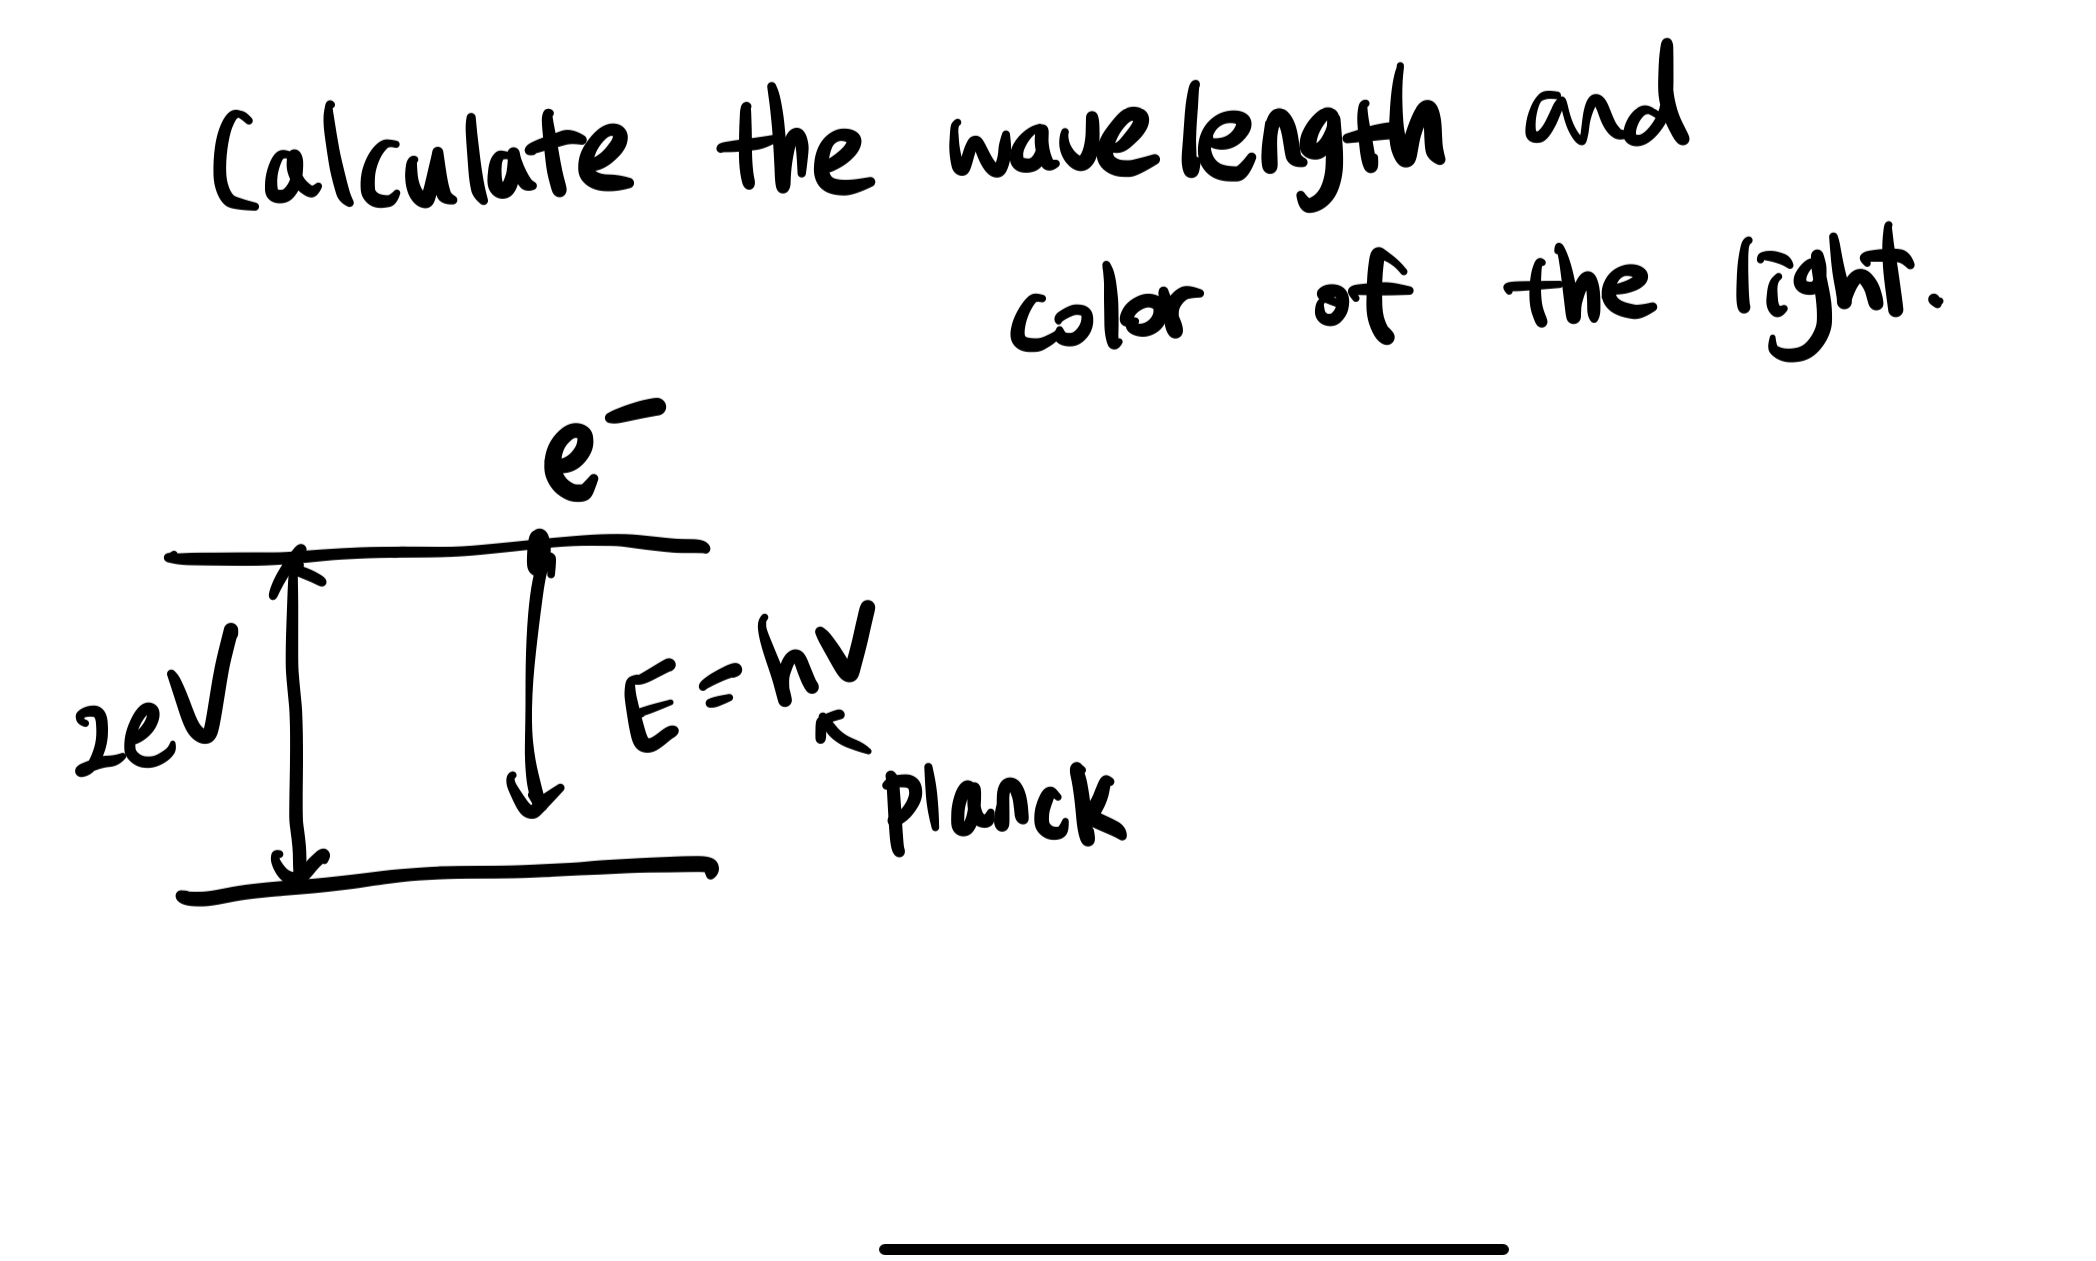 Calculate the wavelength and
color of the light.
e⁻
2eV
E = hν
planck